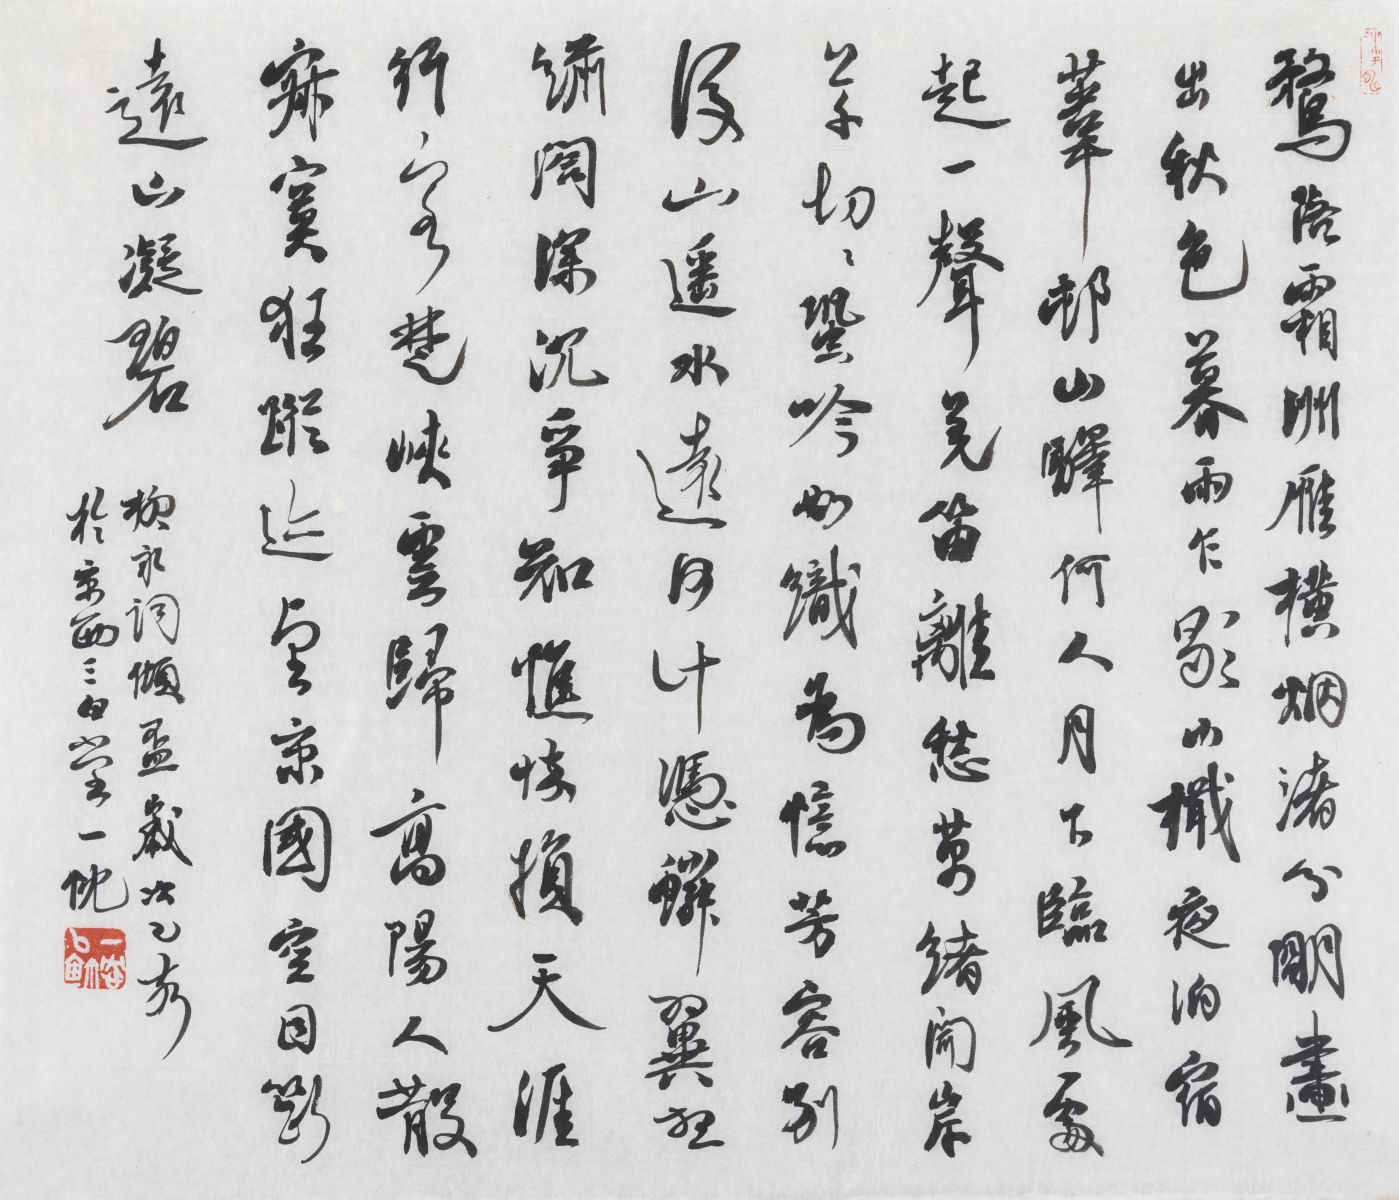 鶩落霜洲雁橫烟渚分明畫
出秋色暮雨乍歇小檝夜泊宿
葦邨山驛何人月下臨風處
起一聲羌笛離愁萬緒聞岸
草切〻蛩吟如織為憶芳容別
後山遥水遠何計憑鱗翼想
繡閣深沉爭知憔悴損天涯
行客楚峽雲歸高陽人散
寂寞狂蹤迹望京國空目斷
遠山凝碧
柳永詞傾盃歲次己亥
於京西三白堂一忱